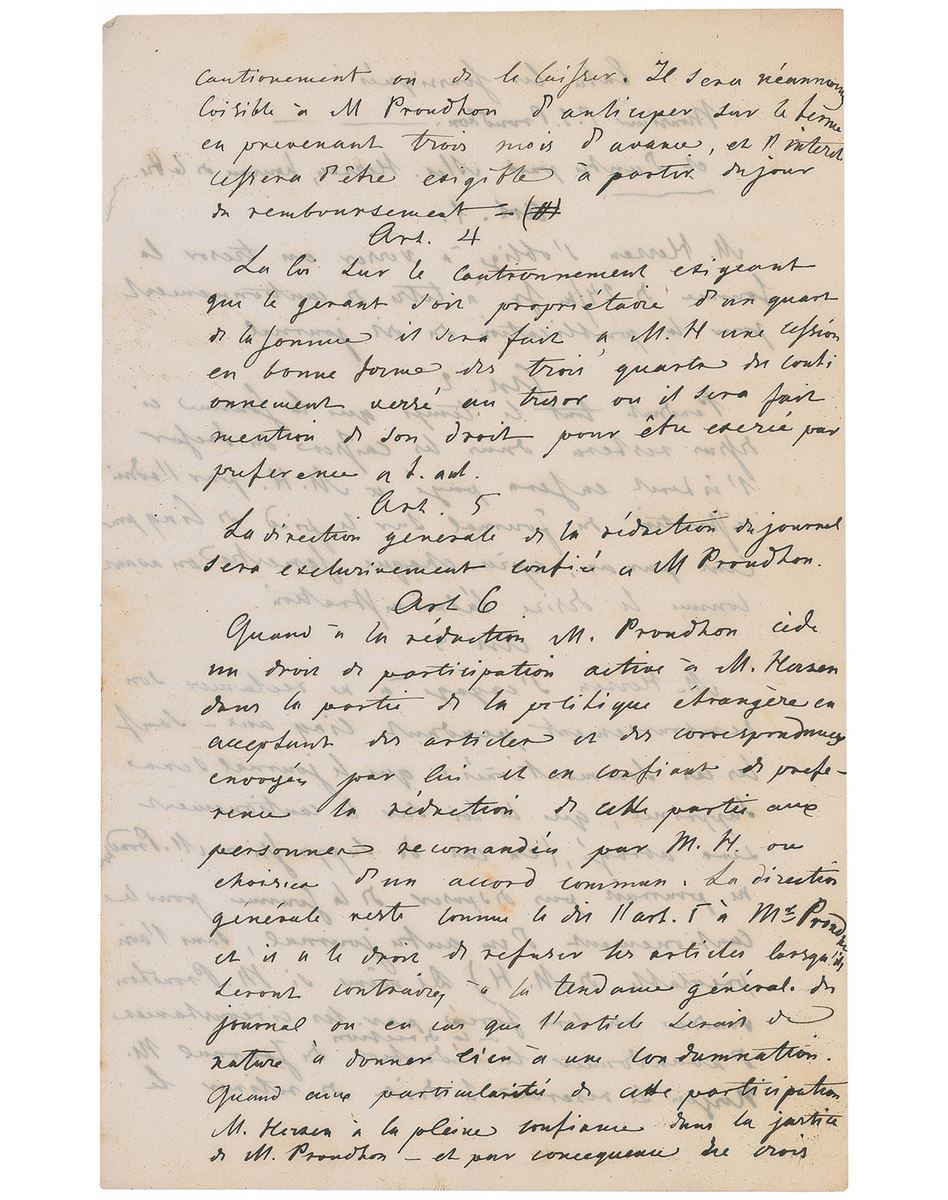 cautionement ou de le laisser. Il sera néanmoins
loisible à M Proudhon d'anticiper sur le terme
en prevenant trois mois d'avance, et l'interet
cessera d'être exigible à partir du jour
du remboursement –
Art. 4
La loi sur le cautionnement exigeant
que le gerant soit propriétaire d'un quart
de la somme il sera fait a M. H une cession
en bonne forme des trois quarts du cauti
onnement versé au tresor ou il sera fait
mention de son droit pour être exercé par
preference a t. aut.
Art. 5
La direction générale de la rédaction du journal
sera exclusivement confiée a M Proudhon.
Art 6
Quand à la rédaction M. Proudhon cède
un droit de participation active à M. Herzen
dans la partie de la politique étrangère en
acceptant des articles et des correspondances
envoyés par lui et en confiant de prefe-
rence la rédaction de cette partie aux
personnes recomandées par M. H. ou
choisies d'un accord commun. La direction
générale reste comme le dis l'art. 5 à Mr Proudhon
et il a le droit de refuser les articles lorsqu'ils
seront contraires à la tendance général. du
journal ou en cas que l'article serait de
nature à donner lieu à une condamnation.
Quand aux particularités de cette participation
M. Herzen à la pleine confiance dans la justice
de M. Proudhon – et par concequence ne crois